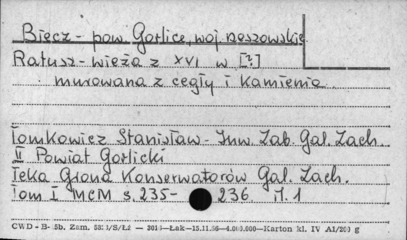 Biecz - pow. Gorlice, woj. rzeszowskie
Ratusz - wieża z XVI w [?]
murowana z cegły i kamienia
Tomkowicz Stanisław - Inw. Zab. Gal. Zach.
II Powiat Gorlicki
Teka Grona Konserwatorów Gal. Zach.
Tom I MCM s. 235- 236. il. 1
CWD - B- 5b. Zam. — 15.11.56—4.000.000—Karton kl. IV A1/200 g